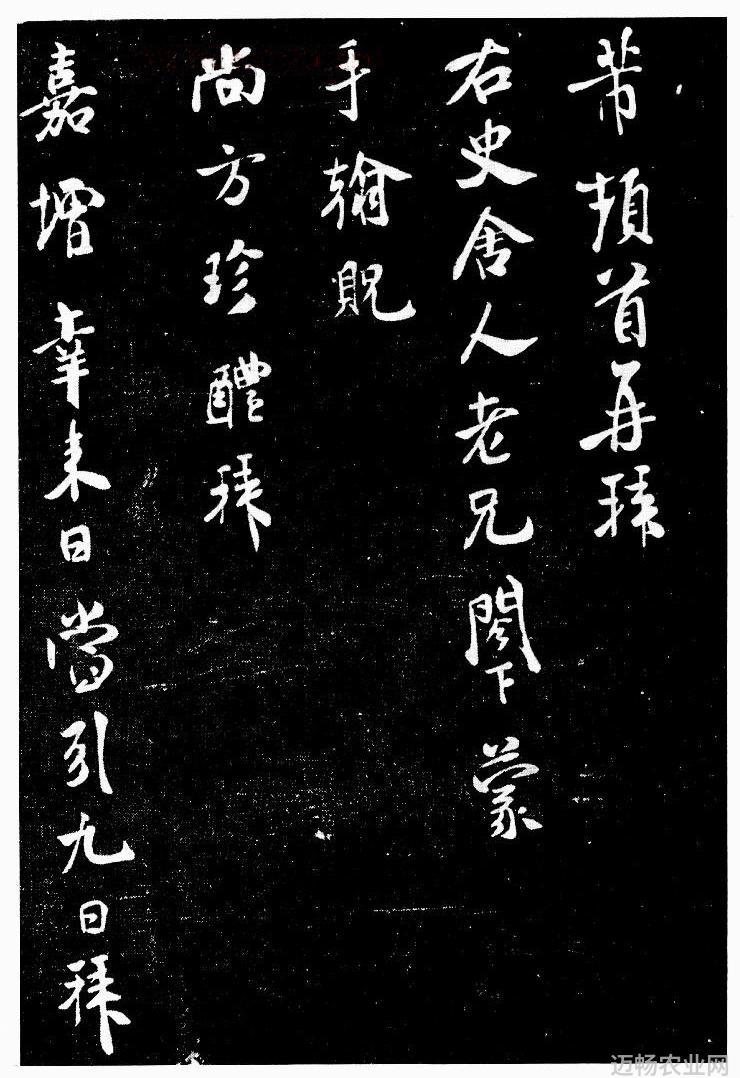 芾頓首再拜
右史舍人老兄閣下蒙
手翰貺
尚方珍醴拜
嘉增幸来日當引九日拜
迈畅农业网